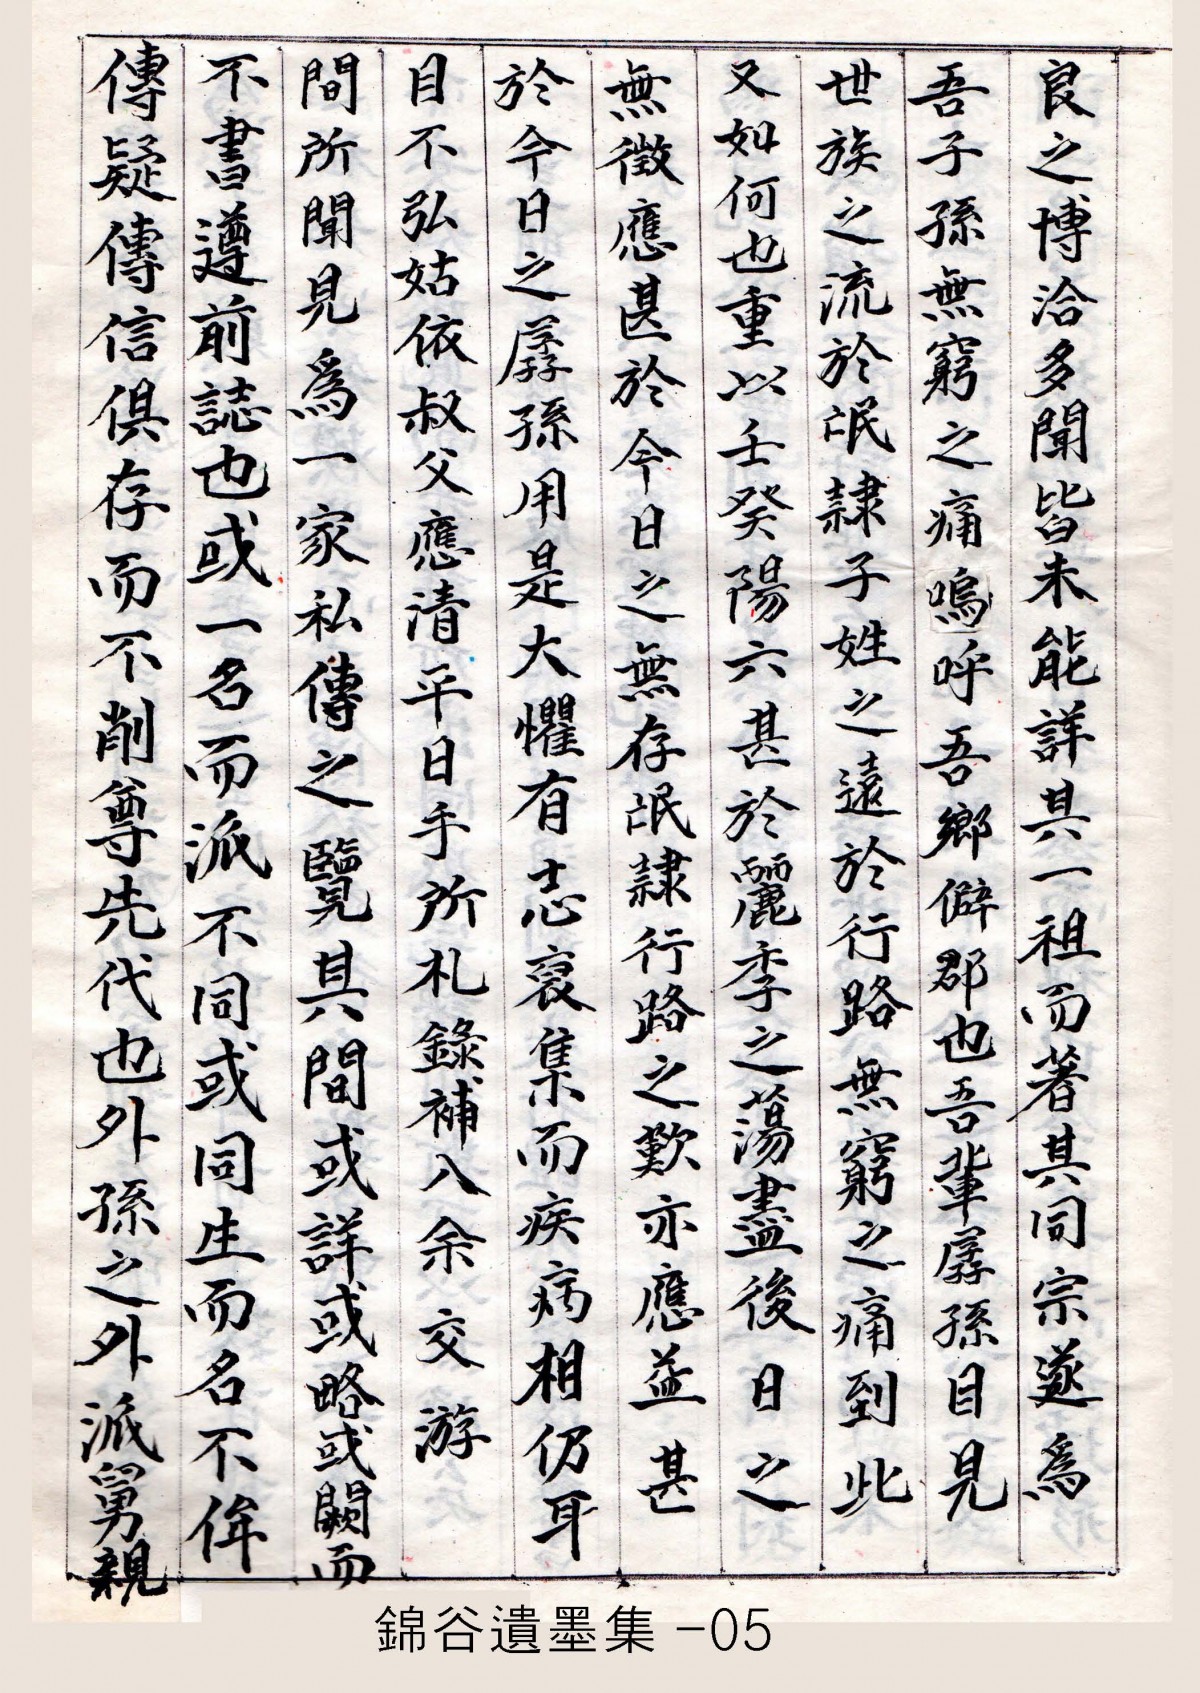 良之博洽多聞皆未能詳其一祖而著其同宗遂爲
吾子孫無窮之痛嗚呼吾鄉僻郡也吾輩孱孫目見
世族之流於氓隷子姓之遠於行路無窮之痛到此
又如何也重以壬癸陽六甚於麗季之蕩盡後日之
無徵應甚於今日之無存氓隷行路之歎亦應益甚
於今日之孱孫用是大懼有志裒集而疾病相仍耳
目不弘姑依叔父應清平日手所札錄補入余交游
間所聞見爲一家私傳之覽其間或詳或略或闕而
不書遵前誌也或一名而派不同或同生而名不侔
傳疑傳信俱存而不削尊先代也外孫之外派舅親
錦谷遺墨集 -05